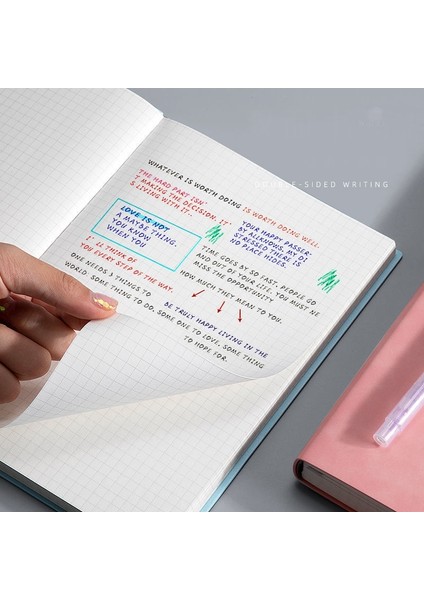 DOUBLE-SIDED WRITING
WHATEVER IS WORTH DOING IS WORTH DOING WELL.
THE HARD PART ISN'
T MAKING THE DECISION. IT'
S LIVING WITH IT..
LOVE IS NOT
A MAYBE THING.
YOU KNOW
WHEN YOU
I' LL THINK OF
YOU EVERY STEP OF THE WAY.
ONE NEEDS 3 THINGS TO
WORLD: SOME THING TO DO, SOME ONE TO LOVE, SOME THING
TO HOPE FOR.
YOUR HAPPY PASSER-
BY ALLKNOWS, MY DI
STRESSED THERE IS
NO PLACE HIDES.
TIME GOES BY SO FAST, PEOPLE GO
AND OUT OF YOUR LIFE. YOU MUST NE
MISS THE OPPORTUNITY
HOW MUCH THEY MEAN TO YOU.
BE TRULY HAPPY LIVING IN THE